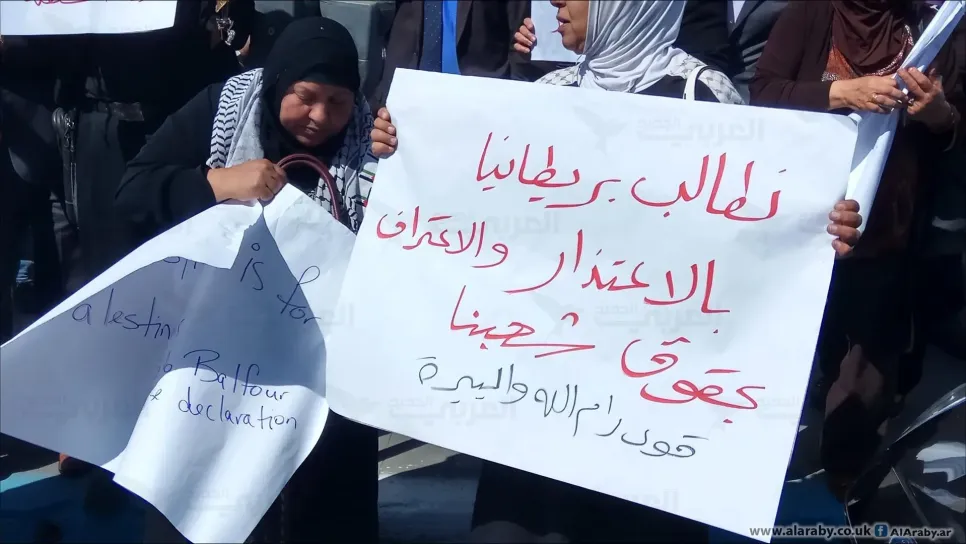 نطالب بريطانيا
بالاعتذار والاعتراف
بحقوق شعبنا
قوى رام الله والبيرة
is for
alestin
Balfour
declaration
www.alaraby.co.uk AlAraby.ar